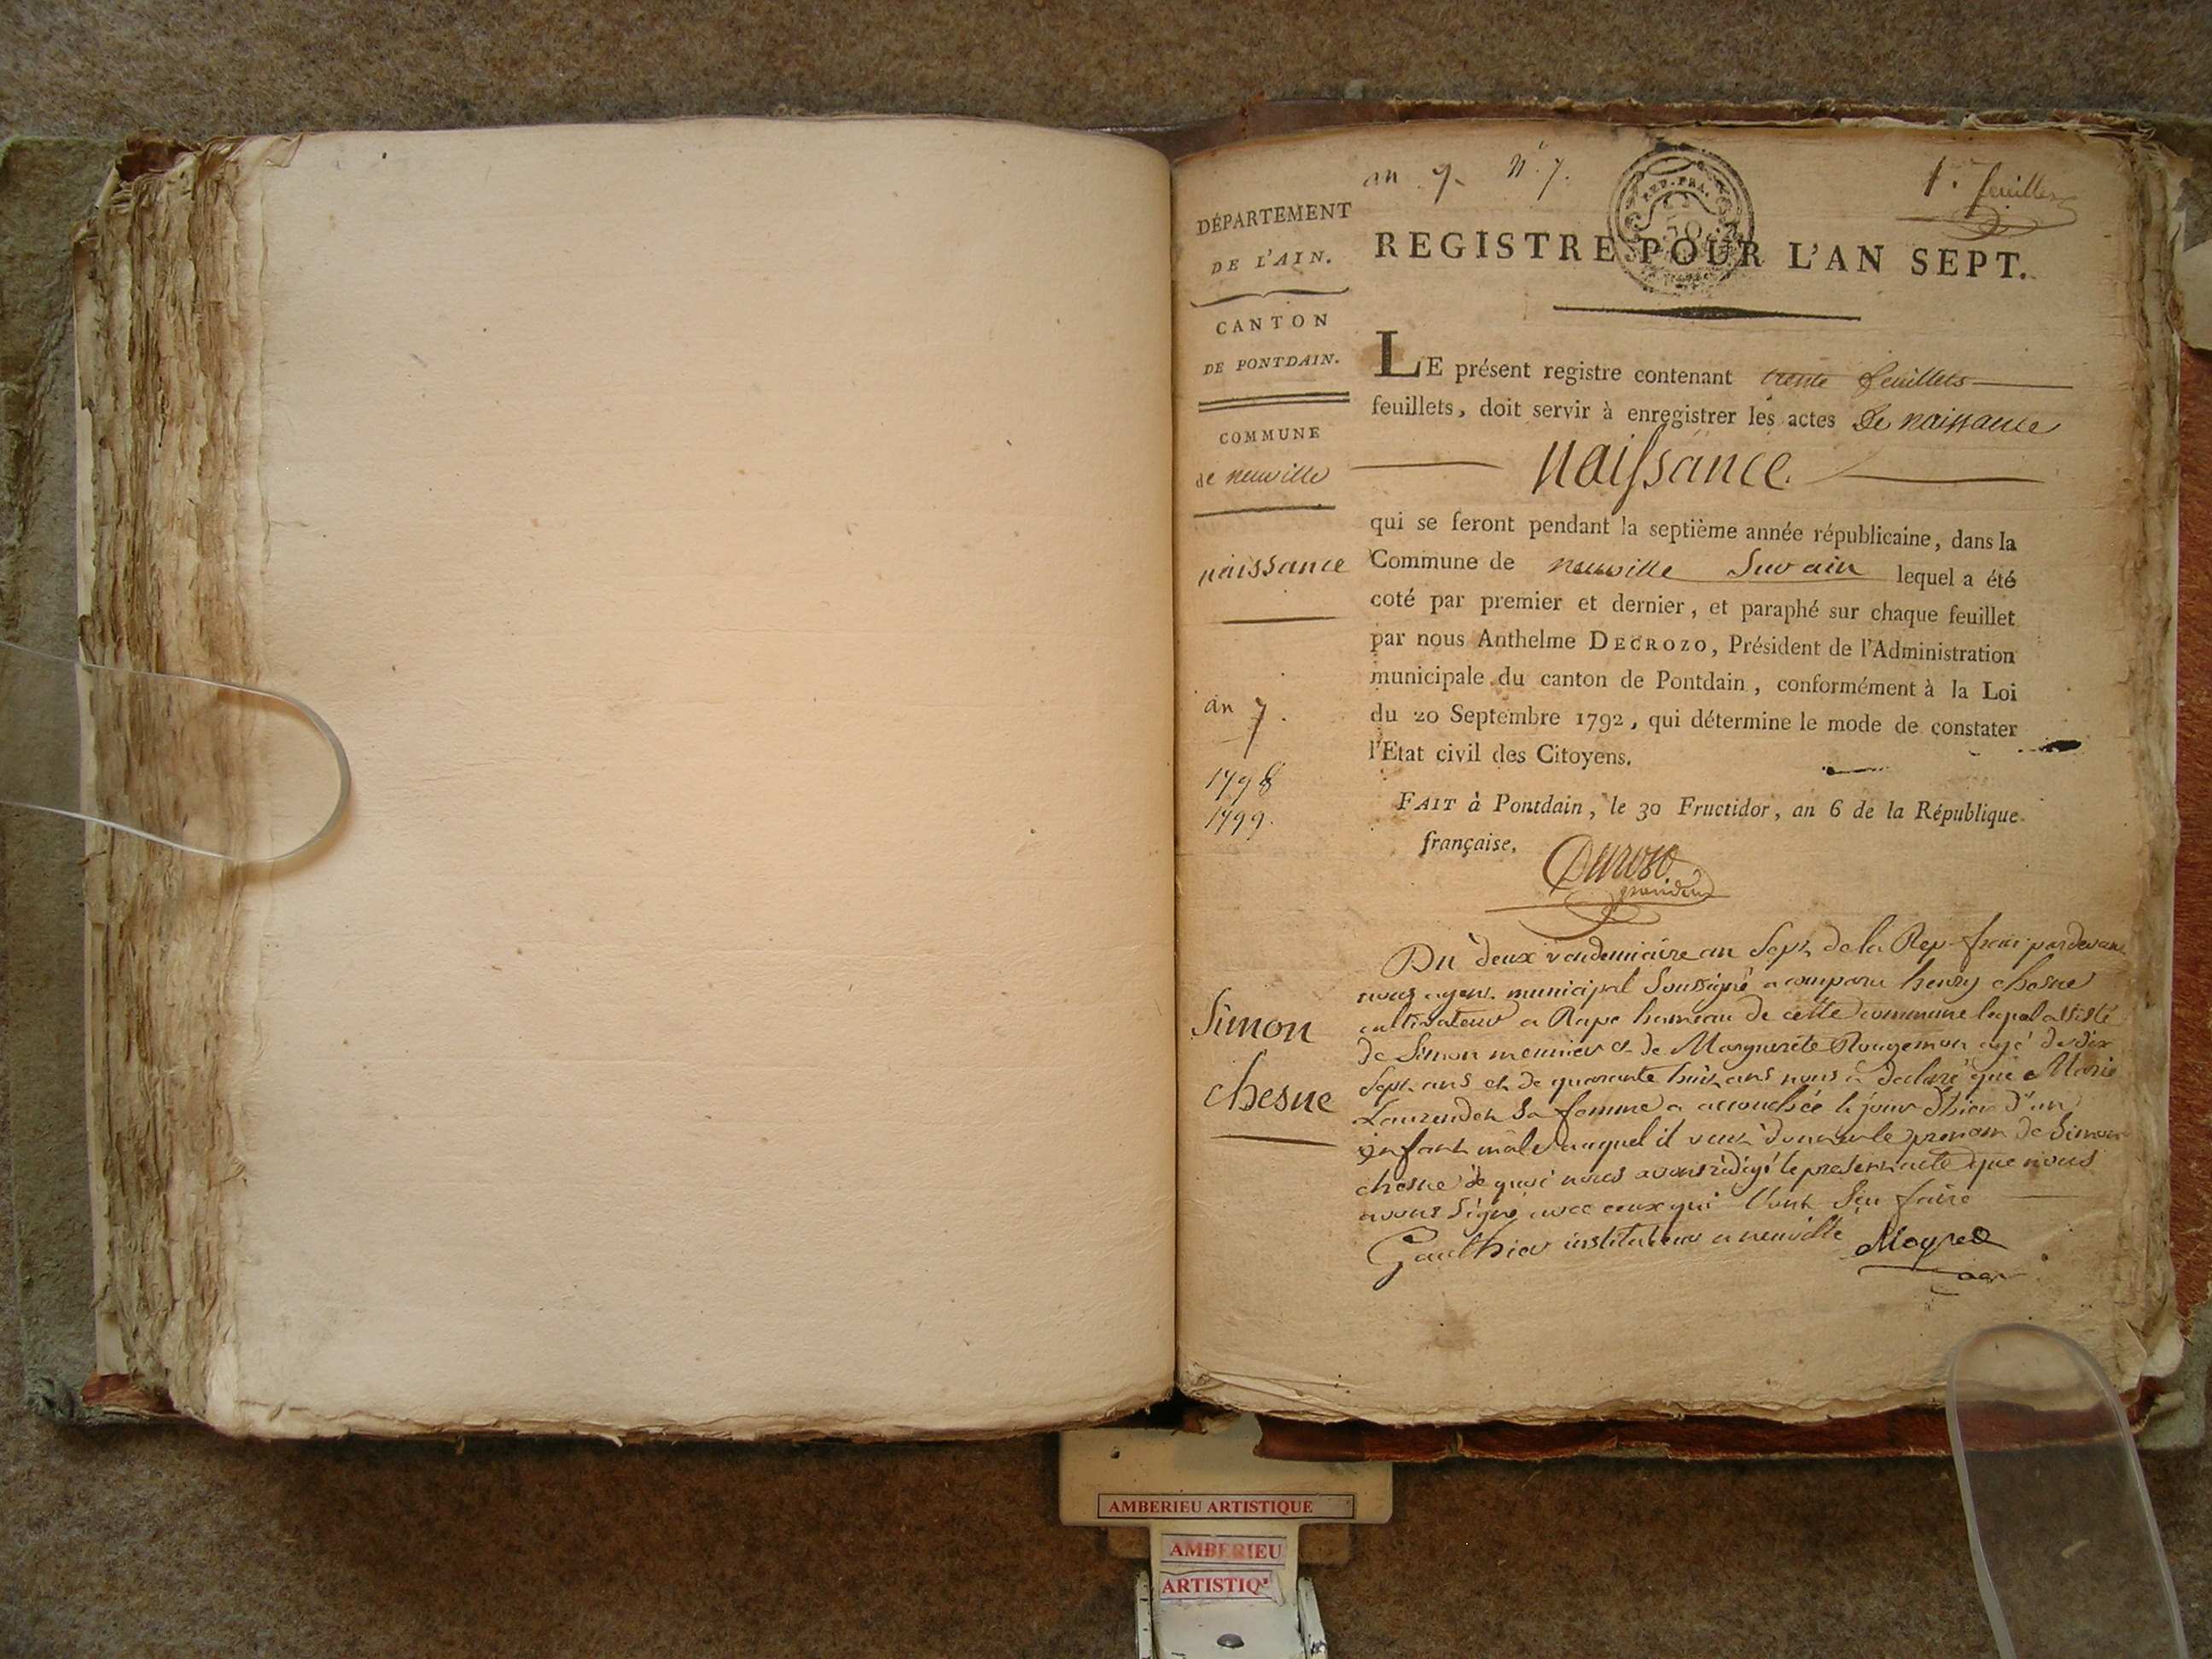 an 7. n°. 7.
1er feuillet
DÉPARTEMENT
DE L'AIN.
CANTON
DE PONTDAIN.
COMMUNE
de neuville
naissance
an 7.
1798
1799.
REP. FRA.
REGISTRE POUR L'AN SEPT.
LE présent registre contenant trente feuillets
feuillets, doit servir à enregistrer les actes de naissance
naissance.
qui se feront pendant la septième année républicaine, dans la
Commune de neuville Sur ain lequel a été
coté par premier et dernier, et paraphé sur chaque feuillet
par nous Anthelme DECROZO, Président de l'Administration
municipale du canton de Pontdain, conformément à la Loi
du 20 Septembre 1792, qui détermine le mode de constater
l'Etat civil des Citoyens.
FAIT à Pontdain, le 30 Fructidor, an 6 de la République
française.
Decroso
president
Simon
chesne
Du deux vendemiaire an Sept de la Rep. frac. pardevant
nous agent municipal Soussigné a comparu henry chesne
cultivateur a Rape hameau de cette commune lequel assisté
de Simon meunier et de Marguerite Rougemon agé de dix
Sept ans et de quarante huit ans nous à declaré que Marie
Laurendet Sa femme a accouchée le jour d'hier d'un
enfant mâle auquel il veut donner le prenom de Simon
chesne de quoi nous avons rédigé le present acte que nous
avons Signé avec ceux qui l'ont Sçu faire
Gauthier instituteur a neuville
AMBERIEU ARTISTIQUE
AMBERIEU
ARTISTIQ